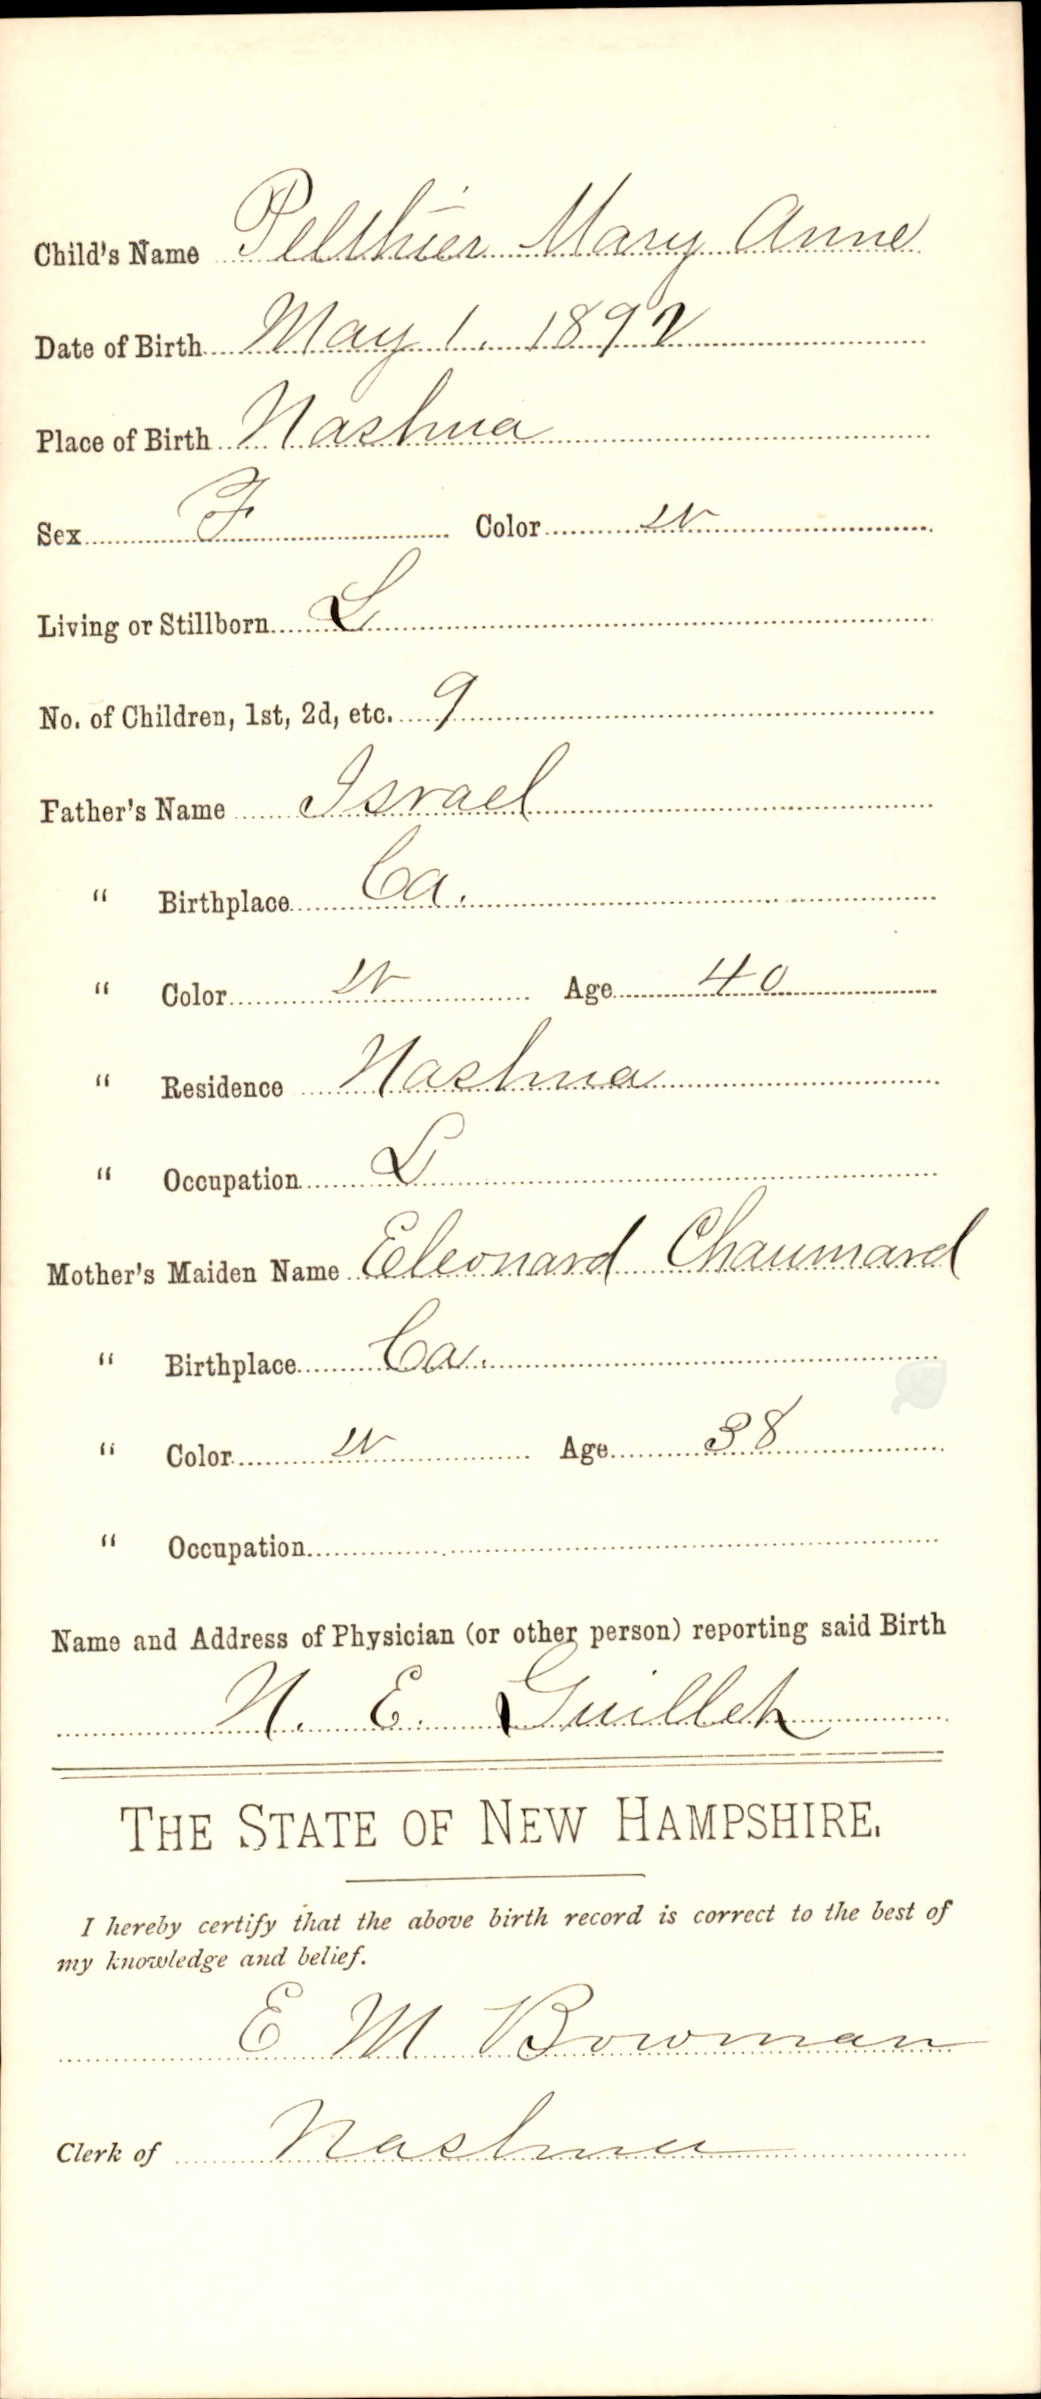 Child's Name Pelthier Mary Anne
Date of Birth May 1. 1892
Place of Birth Nashua
Sex F Color W
Living or Stillborn L
No. of Children, 1st, 2d, etc. 9
Father's Name Israel
" Birthplace Ca.
" Color W Age 40
" Residence Nashua
" Occupation L
Mother's Maiden Name Eleonard Chaumard
" Birthplace Ca.
" Color W Age 38
" Occupation
Name and Address of Physician (or other person) reporting said Birth
N. E. Guilleh
THE STATE OF NEW HAMPSHIRE.
I hereby certify that the above birth record is correct to the best of
my knowledge and belief.
E M Bowman
Clerk of Nashua